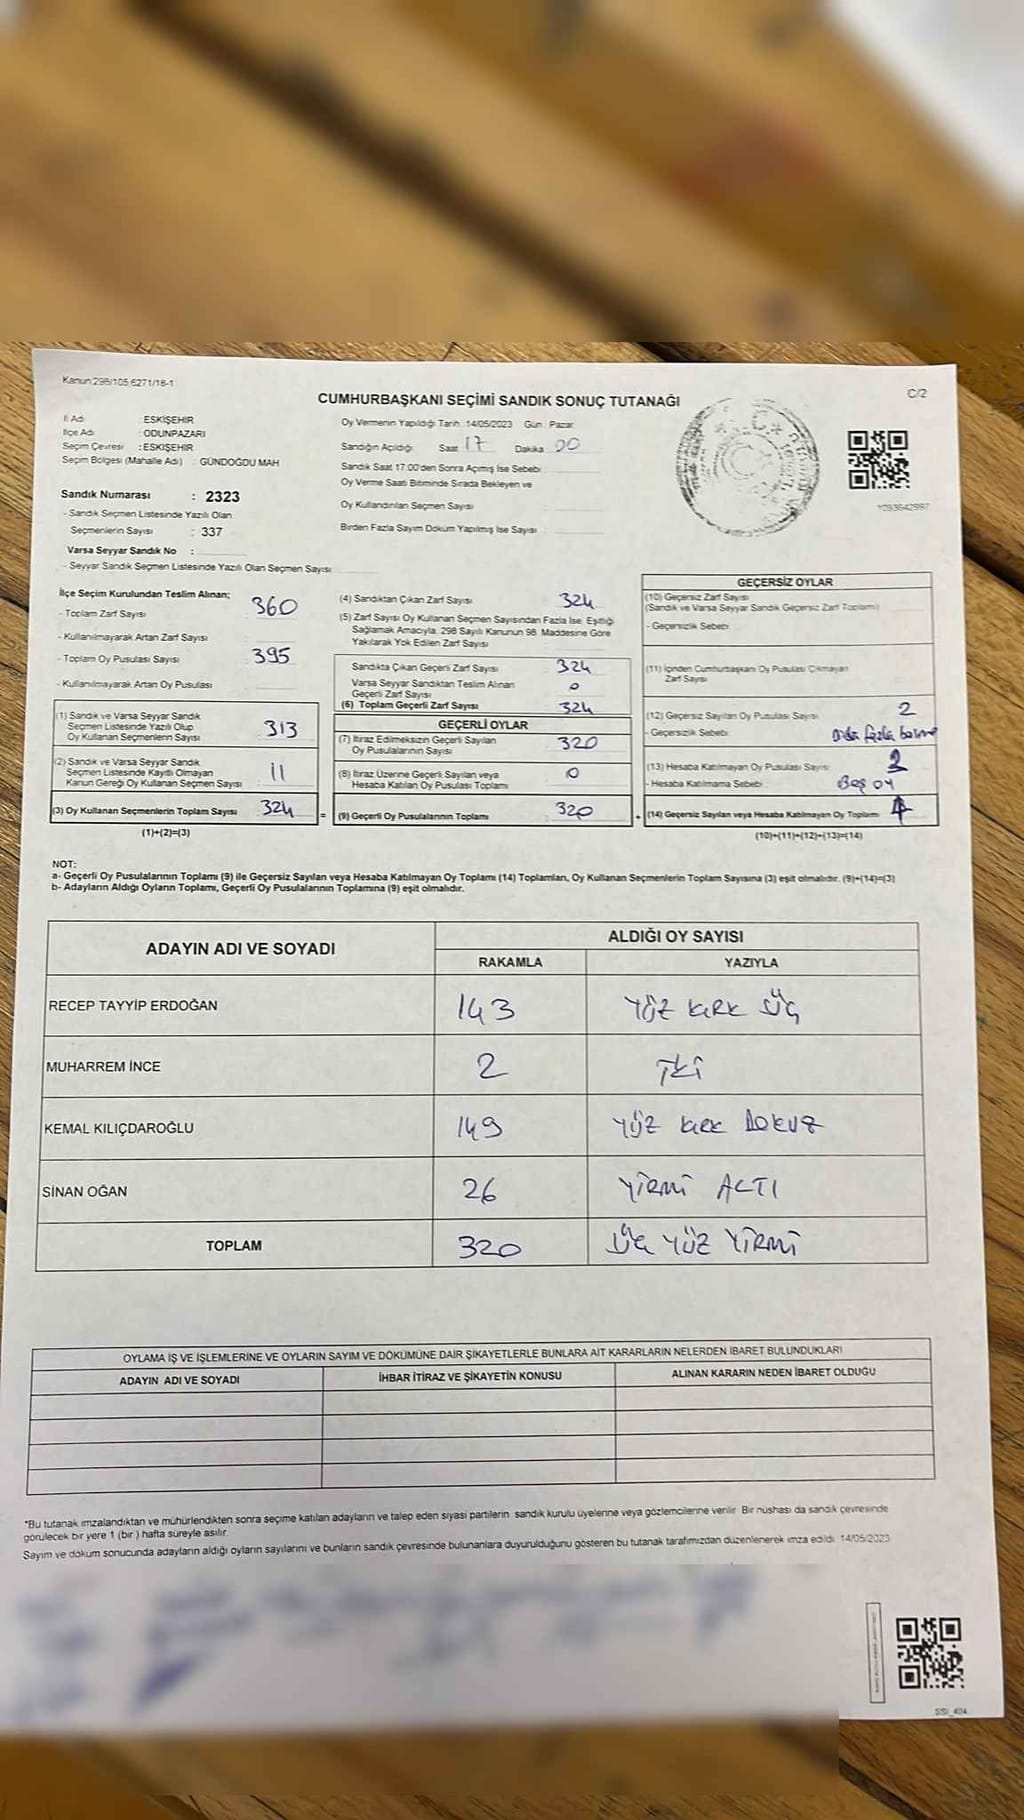 Kanun:298/105,6271/18-1
CUMHURBAŞKANI SEÇİMİ SANDIK SONUÇ TUTANAĞI
C/2
İl Adı : ESKİŞEHİR
İlçe Adı : ODUNPAZARI
Seçim Çevresi : ESKİŞEHİR
Seçim Bölgesi (Mahalle Adı) : GÜNDOĞDU MAH
Sandık Numarası : 2323
- Sandık Seçmen Listesinde Yazılı Olan
Seçmenlerin Sayısı : 337
Varsa Seyyar Sandık No :
- Seyyar Sandık Seçmen Listesinde Yazılı Olan Seçmen Sayısı
Oy Vermenin Yapıldığı Tarih :14/05/2023 Gün : Pazar
Sandığın Açıldığı Saat 17 Dakika 00
Sandık Saat 17:00'den Sonra Açımış İse Sebebi
Oy Verme Saati Bitiminde Sırada Bekleyen ve
Oy Kullandırılan Seçmen Sayısı
Birden Fazla Sayım Döküm Yapılmış İse Sayısı
1093642997
İlçe Seçim Kurulundan Teslim Alınan;
- Toplam Zarf Sayısı 360
- Kullanılmayarak Artan Zarf Sayısı
- Toplam Oy Pusulası Sayısı 395
- Kullanılmayarak Artan Oy Pusulası
(1) Sandık ve Varsa Seyyar Sandık
Seçmen Listesinde Yazılı Olup
Oy Kullanan Seçmenlerin Sayısı 313
(2) Sandık ve Varsa Seyyar Sandık
Seçmen Listesinde Kayıtlı Olmayan
Kanun Gereği Oy Kullanan Seçmen Sayısı 11
(3) Oy Kullanan Seçmenlerin Toplam Sayısı 324
(1)+(2)=(3)
=
(4) Sandıktan Çıkan Zarf Sayısı 324
(5) Zarf Sayısı Oy Kullanan Seçmen Sayısından Fazla İse, Eşitliği
Sağlamak Amacıyla, 298 Sayılı Kanunun 98. Maddesine Göre
Yakılarak Yok Edilen Zarf Sayısı
Sandıkta Çıkan Geçerli Zarf Sayısı 324
Varsa Seyyar Sandıktan Teslim Alınan
Geçerli Zarf Sayısı 0
(6) Toplam Geçerli Zarf Sayısı 324
GEÇERLİ OYLAR
(7) İtiraz Edilmeksizin Geçerli Sayılan
Oy Pusulalarının Sayısı 320
(8) İtiraz Üzerine Geçerli Sayılan veya
Hesaba Katılan Oy Pusulası Toplamı 0
(9) Geçerli Oy Pusulalarının Toplamı 320
+
GEÇERSİZ OYLAR
(10) Geçersiz Zarf Sayısı
(Sandık ve Varsa Seyyar Sandık Geçersiz Zarf Toplamı)
- Geçersizlik Sebebi
(11) İçinden Cumhurbaşkanı Oy Pusulası Çıkmayan
Zarf Sayısı
(12) Geçersiz Sayılan Oy Pusulası Sayısı 2
- Geçersizlik Sebebi fazla basma
(13) Hesaba Katılmayan Oy Pusulası Sayısı 2
- Hesaba Katılmama Sebebi Boş oy
(14) Geçersiz Sayılan veya Hesaba Katılmayan Oy Toplamı 4
(10)+(11)+(12)+(13)=(14)
NOT:
a- Geçerli Oy Pusulalarının Toplamı (9) ile Geçersiz Sayılan veya Hesaba Katılmayan Oy Toplamı (14) Toplamları, Oy Kullanan Seçmenlerin Toplam Sayısına (3) eşit olmalıdır. (9)+(14)=(3)
b- Adayların Aldığı Oyların Toplamı, Geçerli Oy Pusulalarının Toplamına (9) eşit olmalıdır.
ADAYIN ADI VE SOYADI
ALDIĞI OY SAYISI
RAKAMLA YAZIYLA
RECEP TAYYİP ERDOĞAN 143 YÜZ KIRK ÜÇ
MUHARREM İNCE 2 İKİ
KEMAL KILIÇDAROĞLU 149 YÜZ KIRK DOKUZ
SİNAN OĞAN 26 YİRMİ ALTI
TOPLAM 320 ÜÇ YÜZ YİRMİ
OYLAMA İŞ VE İŞLEMLERİNE VE OYLARIN SAYIM VE DÖKÜMÜNE DAİR ŞİKAYETLERLE BUNLARA AİT KARARLARIN NELERDEN İBARET BULUNDUKLARI
ADAYIN ADI VE SOYADI İHBAR İTİRAZ VE ŞİKAYETİN KONUSU ALINAN KARARIN NEDEN İBARET OLDUĞU
*Bu tutanak imzalandıktan ve mühürlendikten sonra seçime katılan adayların ve talep eden siyasi partilerin sandık kurulu üyelerine veya gözlemcilerine verilir. Bir nüshası da sandık çevresinde
görülecek bir yere 1 (bir ) hafta süreyle asılır.
Sayım ve döküm sonucunda adayların aldığı oyların sayılarını ve bunların sandık çevresinde bulunanlara duyurulduğunu gösteren bu tutanak tarafımızdan düzenlenerek imza edildi. 14/05/2023
SSI_404